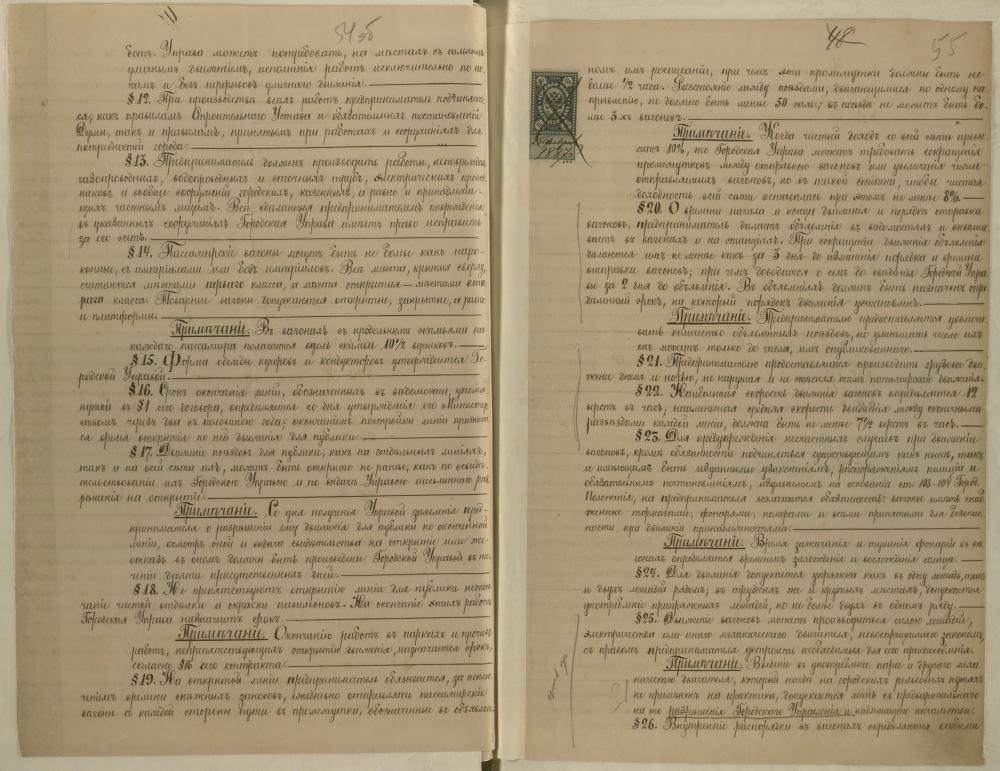 54 об
ботъ. Управа можетъ потребовать, на мѣстахъ съ сильнымъ
уличнымъ движеніемъ, исполненія работъ исключительно по но-
чамъ и безъ перерывовъ уличнаго движенія.
§ 12. При производствѣ всѣхъ работъ предприниматель подчиняет-
ся, какъ правиламъ Строительнаго Устава и обязательныхъ постановленій
Думы, такъ и правиламъ, принятымъ при работахъ и сооруженіяхъ для
потребностей города.
§ 13. Предприниматель долженъ производить работы, неповреждая
газопроводныхъ, водопроводныхъ и сточныхъ трубъ, электрическихъ провод-
никовъ и вообще сооруженій городскихъ, казенныхъ, а равно и принадлежа-
щихъ частнымъ лицамъ. Всѣ сдѣланныя предпринимателемъ поврежденія
въ указанныхъ сооруженіяхъ Городская Управа имѣетъ право исправить
за его счетъ.
§ 14. Пассажирскіе вагоны могутъ быть не болѣе какъ паро-
конные, съ имперіалами или безъ имперіаловъ. Всѣ мѣста, крытыя сверху,
считаются мѣстами перваго класса, а мѣста открытыя — мѣстами вто-
раго класса. Товарные вагоны допускаются открытые, закрытые, а равно
и платформы.
Примѣчаніе. Въ вагонахъ съ продольными скамьями на
каждаго пассажира полагается вдоль скамьи 10½ вершковъ.
§ 15. Форма одежды кучеровъ и кондукторовъ утверждается Го-
родской Управой.
§ 16. Срокъ окончанія линій, обозначенныхъ въ вѣдомости, упомя-
нутой въ § 1 сего договора, опредѣляется со дня утвержденія его Министер-
ствомъ черезъ два съ половиною года; окончаніемъ постройки линій признает-
ся время открытія по ней движенія для публики.
§ 17. Движеніе поѣздовъ для публики, какъ на отдѣльныхъ линіяхъ,
такъ и на всей сѣти ихъ, можетъ быть открыто не ранѣе, какъ по освидѣ-
тельствованіи ихъ Городскою Управою и по выдачѣ Управою письменнаго раз-
рѣшенія на открытіе.
Примѣчаніе. Со дня полученія Управой заявленія пред-
принимателя о разрѣшеніи ему движенія для публики по оконченной
линіи, осмотръ оной и выдача свидѣтельства на открытіе или же
отказъ въ ономъ должны быть произведены Городской Управой въ те-
ченіи десяти присутственныхъ дней.
§ 18. Не препятствуютъ открытію линіи для публики неокон-
чаніе чистой отдѣлки и окраски павильоновъ. На окончаніе этихъ работъ
Городская Управа назначитъ срокъ.
Примѣчаніе. Окончанію работъ въ паркахъ и прочихъ
работъ, непрепятствующихъ открытію движенія, назначается срокъ,
согласно § 16 сего контракта.
§ 19. На открытой линіи предприниматель обязывается, за исклю-
ченіемъ времени снѣжныхъ заносовъ, ежедневно отправлять пассажирскіе
вагоны съ каждой стороны пути въ промежутки, обозначенные въ объявлен-
48
55
номъ имъ росписаніи, при чемъ эти промежутки должны быть не
болѣе ½ часа. Разстояніе между поѣздами, двигающимися по одному на-
правленію, не должно быть менѣе 50 саж; въ поѣздѣ не можетъ быть бо-
лѣе 3-хъ вагоновъ.
Примѣчаніе. Когда чистый доходъ со всей сѣти превы-
ситъ 10%, то Городская Управа можетъ требовать сокращенія
промежутковъ между отправкою вагоновъ или увеличенія числа
отправляемыхъ вагоновъ, но въ такой степени, чтобы чистая
доходность всей сѣти оставалась при этомъ не менѣе 8%.
§ 20. О времени начала и конца движенія и порядкѣ отправки
вагоновъ, предприниматель дѣлаетъ объявленія въ вѣдомостяхъ и вывѣши-
ваетъ въ вагонахъ и на станціяхъ. При сокращеніи движенія объявленія
дѣлаются имъ не менѣе какъ за 3 дня до измѣненія порядка и времени
отправки вагоновъ; при чемъ доводится о семъ до свѣдѣнія Городской Упра-
вы за 2 дня до объявленія. Въ объявленіяхъ долженъ быть назначенъ опре-
дѣленный срокъ, на который порядокъ движенія установленъ.
Примѣчаніе. Предпринимателю предоставляется увеличи-
вать количество объявленныхъ поѣздовъ, но уменьшать число ихъ
онъ можетъ только до числа, имъ опубликованнаго.
§ 21. Предпринимателю предоставляется производить грузовое дви-
женіе днемъ и ночью, не нарушая и не стѣсняя тѣмъ пассажирскаго движенія.
§ 22. Наибольшая скорость движенія вагоновъ опредѣляется 12
верстъ въ часъ; наименьшая средняя скорость движенія между оконечными
разъѣздами каждой линіи, должна быть не менѣе 7½ верстъ въ часъ.
§ 23. Для предупрежденія несчастныхъ случаевъ при движеніи
вагоновъ, кромѣ обязанности подчиняться существующимъ какъ нынѣ, такъ
и имѣющимъ быть изданными узаконеніямъ, распоряженіямъ полиціи и
обязательнымъ постановленіямъ, издаваемымъ на основаніи ст. 103-104 Город.
Положенія, на предпринимателя возлагается обязанность: вагоны имѣть снаб-
женные тормазами, фонарями, номерами и всѣми принятыми для безопас-
ности при движеніи принадлежностями.
Примѣчаніе. Время зажиганія и тушенія фонарей въ ва-
гонахъ опредѣляется временемъ захожденія и восхожденія солнца.
§ 24. Для движенія допускается упряжка какъ въ одну лошадь, такъ
и двухъ лошадей рядомъ; въ трудныхъ же и крутыхъ мѣстахъ, допускается
употребленіе припряжныхъ лошадей, но не болѣе двухъ въ одномъ ряду.
§ 25. Движеніе вагоновъ можетъ производиться силою лошадей,
электричества или инаго механическаго двигателя, невоспрещеннаго закономъ,
съ правомъ предпринимателя устроить необходимыя для сего приспособленія.
Примѣчаніе. Введеніе въ употребленіе пара и другаго меха-
ническаго двигателя, который нигдѣ на городскихъ рельсовыхъ путяхъ
не примѣненъ на практикѣ, допускается лишь съ предварительнаго
на то разрѣшенія Городскаго Управленія и надлежащаго начальства.
§ 26. Внутренніе распорядки въ вагонахъ опредѣляются особыми